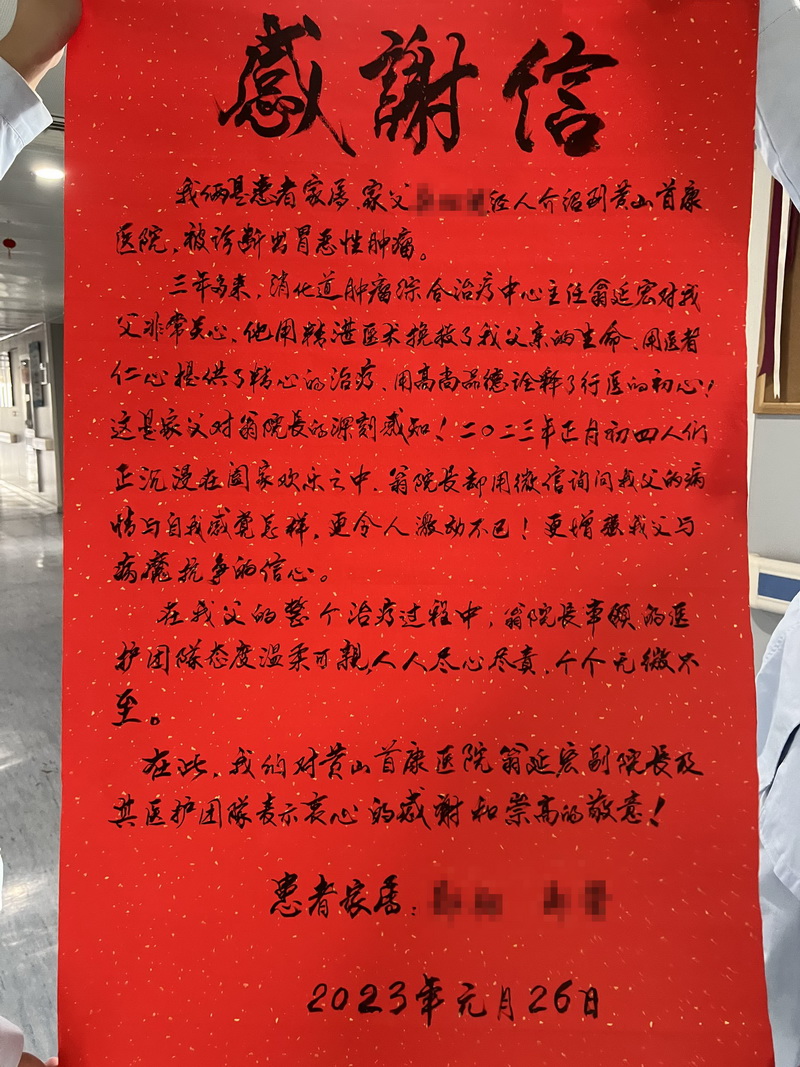 感謝信
我俩是患者家属，家父经人介绍到黄山首康
医院，被诊断出胃恶性肿瘤。
三年多来，消化道肿瘤综合治疗中心主任翁延宏对我
父非常关心、他用精湛医术挽救了我父亲的生命、用医者
仁心提供了精心的治疗、用高尚品德诠释了行医的初心！
这是家父对翁院长的深刻感知！二〇二三年正月初四人们
正沉浸在阖家欢乐之中、翁院长却用微信询问我父的病
情与自我感觉怎样，更令人激动不已！更增强我父与
病魔抗争的信心。
在我父的整个治疗过程中，翁院长率领的医
护团队态度温柔可親，人人尽心尽责，个个无微不
至。
在此，我们对黄山首康医院翁延宏副院长及
其医护团队表示衷心的感謝和崇高的敬意！
患者家属：
2023年元月26日